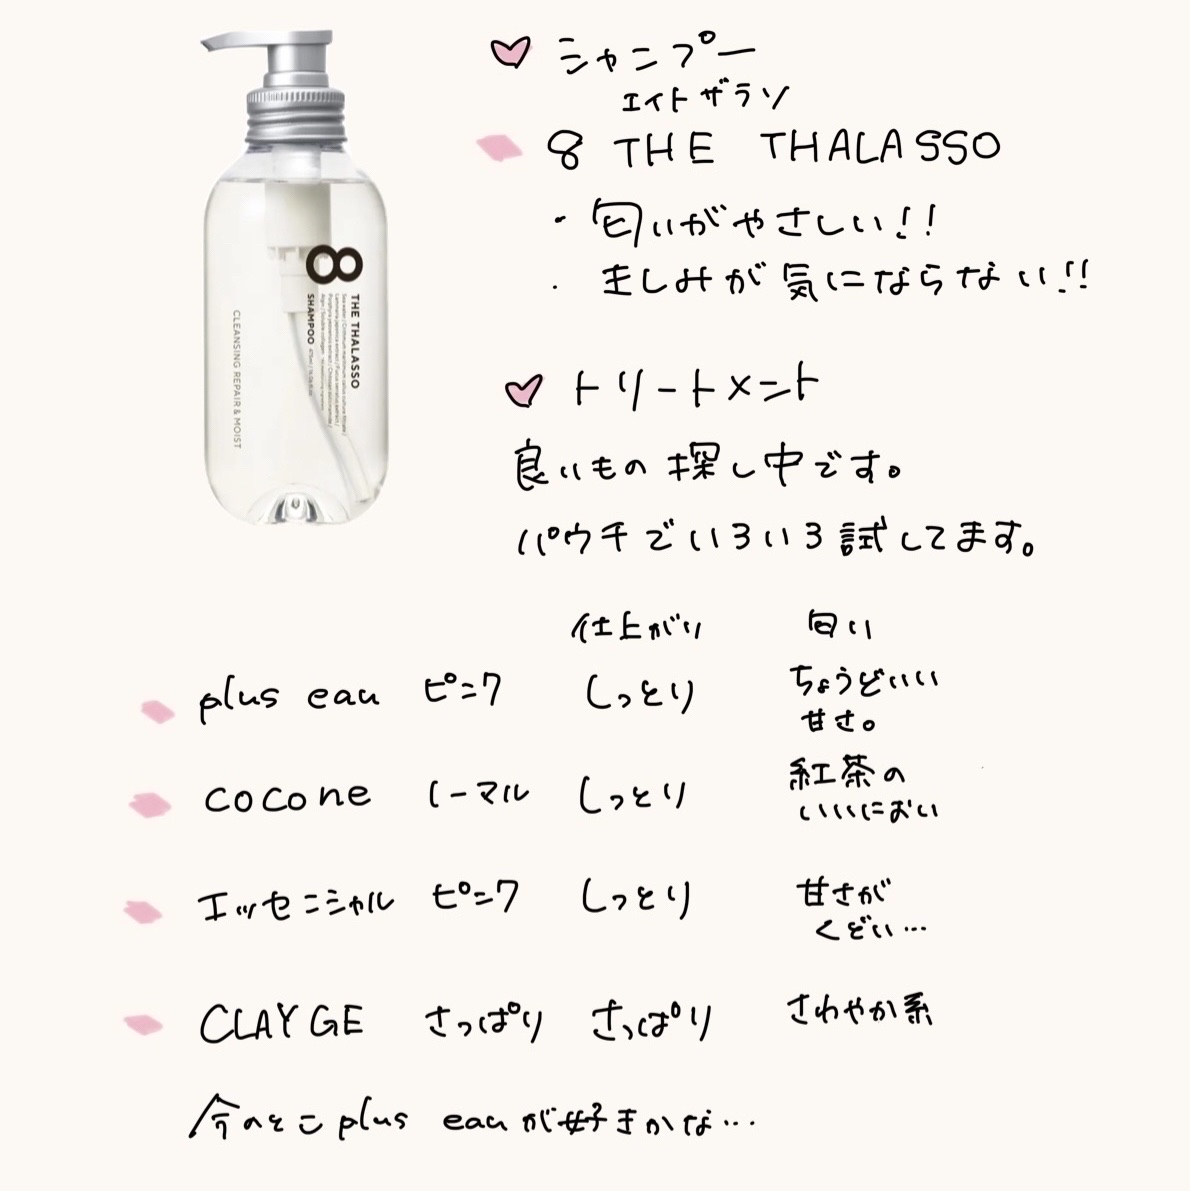 シャンプー
エイトザラソ
8 THE THALASSO
・匂いがやさしい!!
・きしみが気にならない!!
トリートメント
良いもの探し中です。
パウチでいろいろ試してます。
仕上がり 匂い
plus eau ピンク しっとり ちょうどいい
甘さ。
cocone ノーマル しっとり 紅茶の
いいにおい
エッセンシャル ピンク しっとり 甘さが
くどい…
CLAYGE さっぱり さっぱり さわやか系
今のとこ plus eauが好きかな…
8
THE THALASSO
SHAMPOO
CLEANSING REPAIR & MOIST